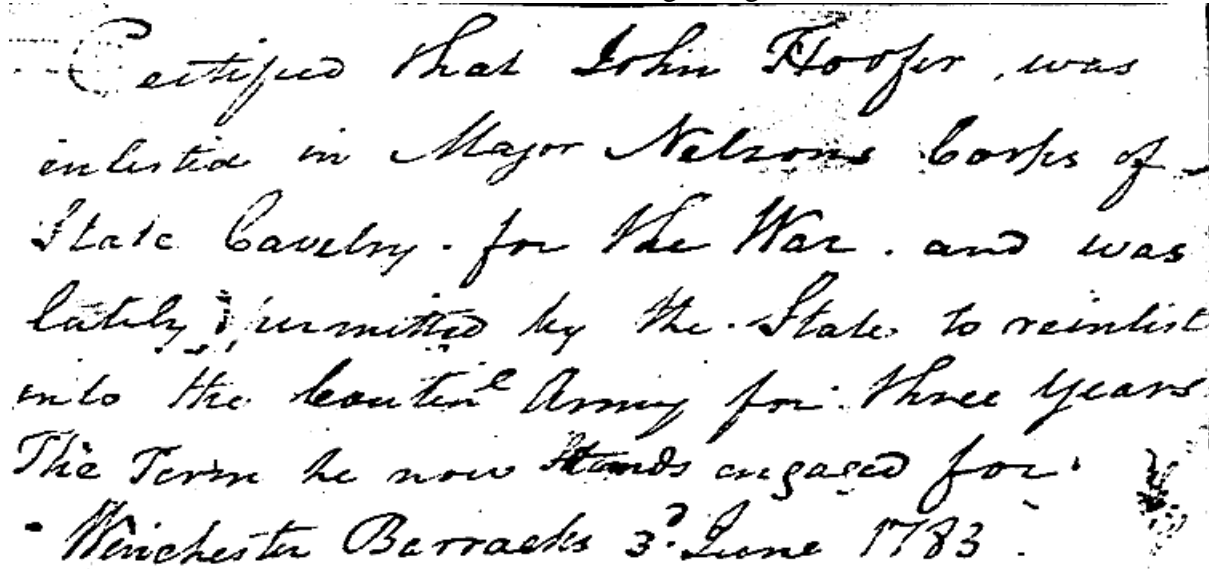 Certified that John Hooper, was
enlisted in Major Nelsons Corps of
State Cavelry. for the War. and was
lately permitted by the State to reinlist
into the Contin^l Army for three years
The Term he now stands engaged for.
Winchester Barracks 3^d. June 1783.